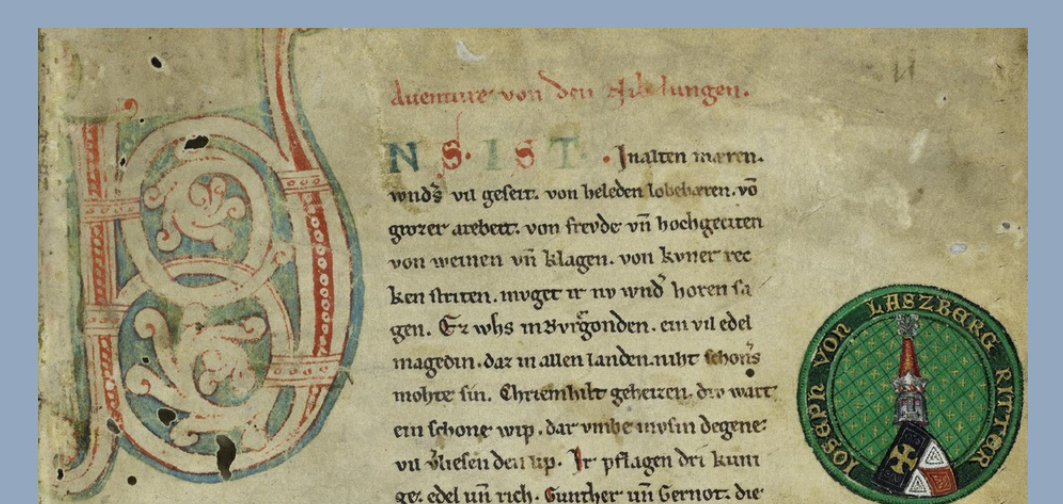 Auenture von den Nibelungen.
VNS. IST. Jnalten mæren.
wnds̄ vil geseit. von heleden lobebæren. võ
grozer arebeit. von frevde vñ hochgeciten
von weinen vñ klagen. von kvner rec
ken striten. mvget ir nv wnd᷑ horen sa
gen. Ez whs inBvrgonden. ein vil edel
magedin. daz in allen landen. niht schon᷑s
mohte sin. Chriemhilt geheizen. div wart
ein schone wip. dar vmbe mvsin degene
vil v᷑liesen den lip. Ir pflagen dri kuni
ge. edel vñ rich. Gunther vñ Gernot. die
IOSEPH VON LASZBERG RITTER